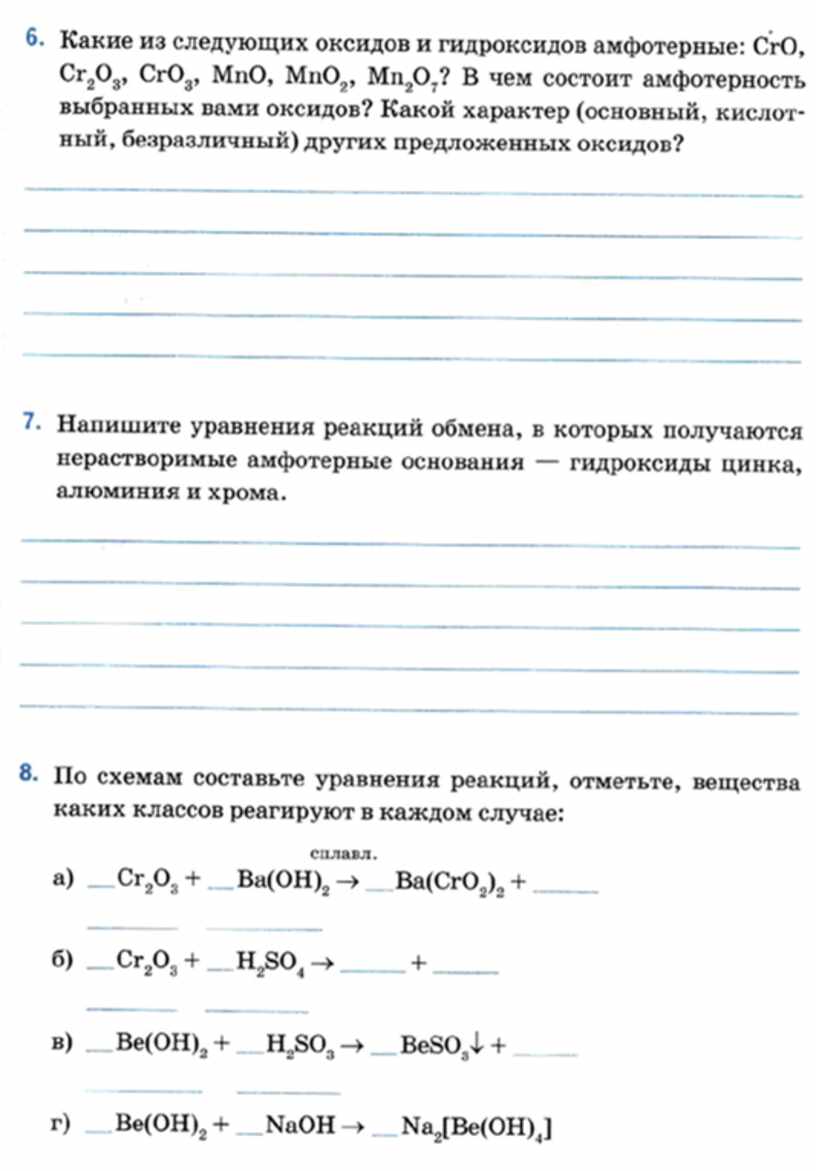 6. Какие из следующих оксидов и гидроксидов амфотерные: CrO,
Cr₂O₃, CrO₃, MnO, MnO₂, Mn₂O₇? В чем состоит амфотерность
выбранных вами оксидов? Какой характер (основный, кислот-
ный, безразличный) других предложенных оксидов?
7. Напишите уравнения реакций обмена, в которых получаются
нерастворимые амфотерные основания — гидроксиды цинка,
алюминия и хрома.
8. По схемам составьте уравнения реакций, отметьте, вещества
каких классов реагируют в каждом случае:
сплавл.
а) __Cr₂O₃ + __Ba(OH)₂ → __Ba(CrO₂)₂ + _____
б) __Cr₂O₃ + __H₂SO₄ → _____ + _____
в) __Be(OH)₂ + __H₂SO₃ → __BeSO₃↓ + _____
г) __Be(OH)₂ + __NaOH → __Na₂[Be(OH)₄]